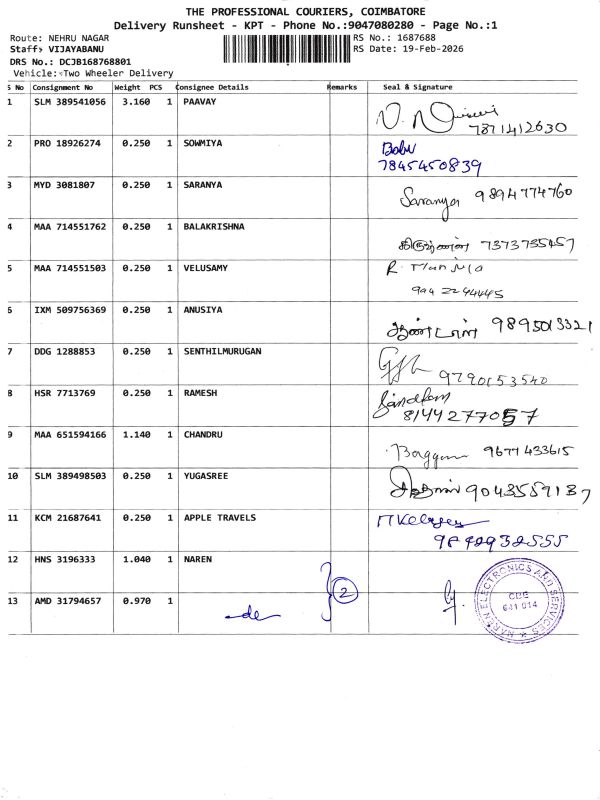 THE PROFESSIONAL COURIERS, COIMBATORE
Delivery Runsheet - KPT - Phone No.:9047080280 - Page No.:1
Route: NEHRU NAGAR
RS No.: 1687688
Staff: VIJAYABANU
RS Date: 19-Feb-2026
DRS No.: DCJB168768801
Vehicle: Two Wheeler Delivery
S No Consignment No Weight PCS Consignee Details Remarks Seal & Signature
1 SLM 389541056 3.160 1 PAAVAY
7871412630
2 PRO 18926274 0.250 1 SOWMIYA Babu
7845450839
3 MYD 3081807 0.250 1 SARANYA Saranya 9894774760
4 MAA 714551762 0.250 1 BALAKRISHNA 7373735457
5 MAA 714551503 0.250 1 VELUSAMY
994 22 44445
6 IXM 509756369 0.250 1 ANUSIYA 9895013321
7 DDG 1288853 0.250 1 SENTHILMURUGAN
9790153540
8 HSR 7713769 0.250 1 RAMESH
8144277057
9 MAA 651594166 1.140 1 CHANDRU 9677433615
10 SLM 389498503 0.250 1 YUGASREE 9043559137
11 KCM 21687641 0.250 1 APPLE TRAVELS
12 HNS 3196333 1.040 1 NAREN
2
13 AMD 31794657 0.970 1
NAREN ELECTRONICS AND SERVICES
CBE
641 014